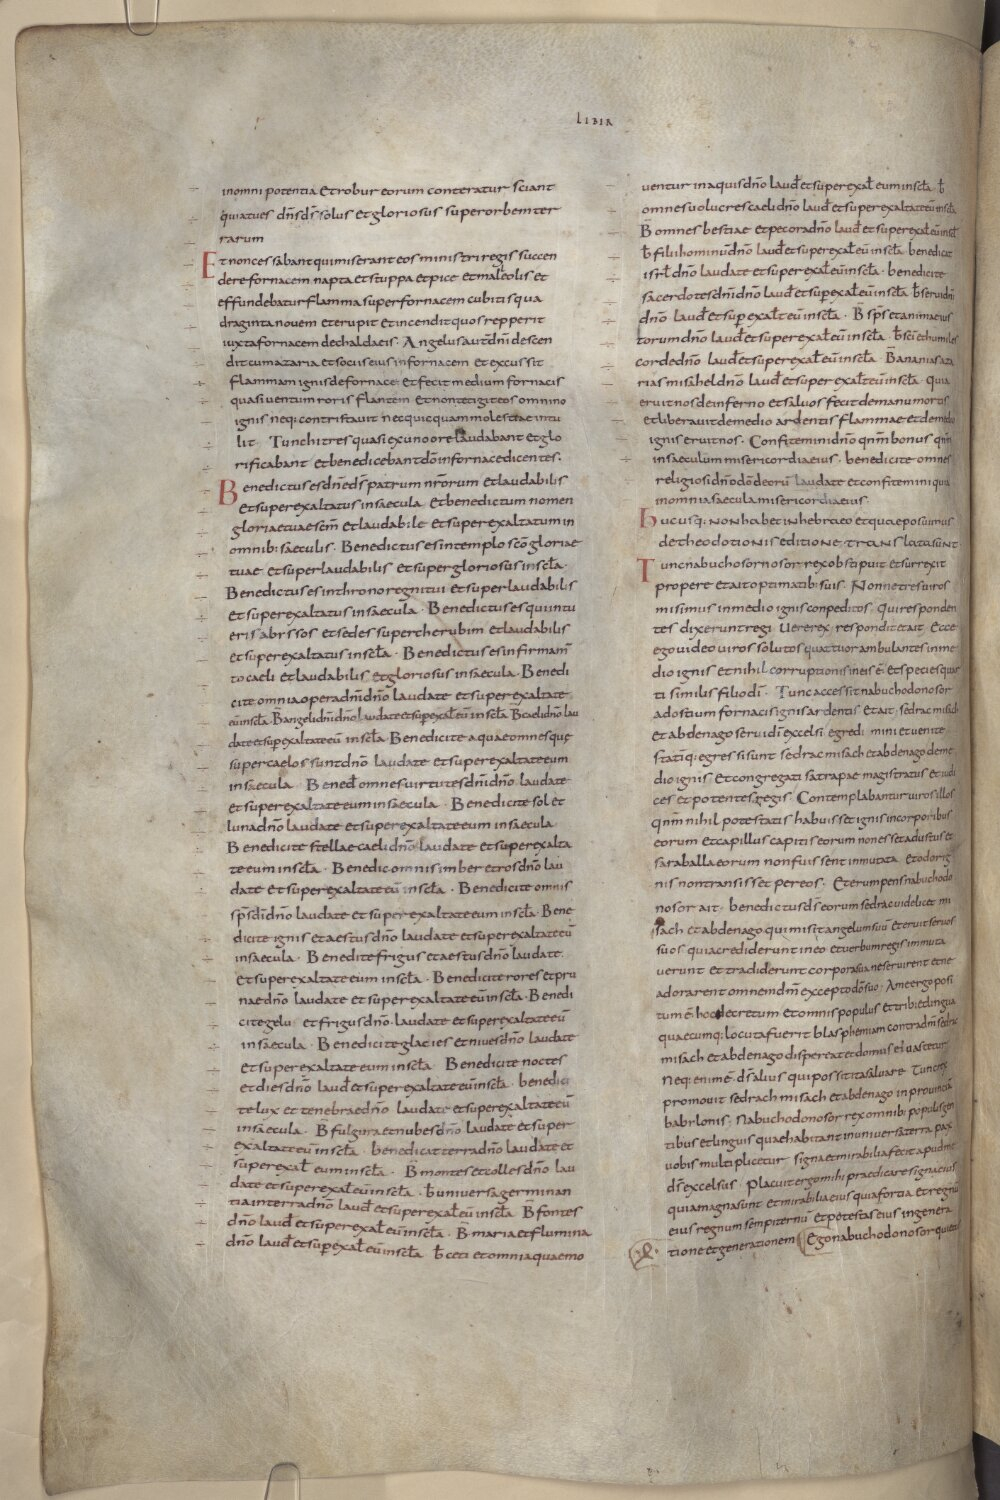 LIBER
inomni potentia etrobur eorum conteratur sciant
quiatues dn̄sd̄s solus etgloriosus superorbemter
rarum
Etnoncessabantquimiserant eos ministriregis succen
derefornacem napta etstuppa etpice etmalleolis et
effundebaturflamma superfornacem cubitisqua
dragintanovem eterupit etincenditquosrepperit
iuxtafornacem dechaldaeis. Angelusautd̄nidescen
ditcumazaria etsociiseius infornacem etexcussit
flammam ignisdefornace. etfecitmedium fornacis
quasiventum roris flantem etnontetigiteos omnino
ignis neq; contristavit necquicquammolestiae intu
lit. Tunchitres quasiexunoore laudabant etglo
rificabant etbenedicebantdm̄ infornacedicentes.
Benedictusesdn̄ed̄s patrum nr̄orum etlaudabilis
etsuperexaltatus insaecula. etbenedictum nomen
gloriaetuaesc̄m etlaudabile etsuperexaltatum in
omnib; saeculis. Benedictusesintemplo sc̄o gloriae
tuae etsuperlaudabilis etsupergloriosus insc̄la.
Benedictusesinthronoregnitui etsuperlaudabilis
etsuperexaltatus insaecula. Benedictusesquiintu
eris abyssos etsedes supercherubim etlaudabilis
etsuperexaltatus insc̄la. Benedictusesinfirmam̄
tocaeli etlaudabilis etgloriosus insaecula. Benedi
cite omnia operadn̄idn̄o laudate etsuperexaltate
eū insc̄la. B̄ angelidn̄idn̄o laudate etsuperexalt̄ eū insc̄la. B̄ caelidn̄o lau
date etsuperexaltateeū insc̄la. Benedicite aquaeomnesquę
supercaelossuntdn̄o laudate etsuperexaltateeum
insaecula. Bened̄ omnesvirtutesdn̄idn̄o laudate
etsuperexaltateeum insaecula. Benedicite sol et
lunadn̄o laudate etsuperexaltateeum insaecula
Benedicite stellaecaelidn̄o laudate etsuperexalta
teeum insc̄la. Benedic omnisimber etrosdn̄o lau
date etsuperexaltateeū insc̄la. Benedicite omnis
sp̄sd̄idn̄o laudate etsuperexaltateeum insc̄la. Bene
dicite ignis etaestusdn̄o laudate etsuperexaltateeū
insaecula. Benedite frigus etaestusdn̄o laudate.
etsuperexaltateeum insc̄la. Benedicite rores etpru
naedn̄o laudate etsuperexaltateeū insc̄la. Benedi
citegelu etfrigusdn̄o. laudate etsuperexaltateeū
insaecula. Benediciteglacies etnivesdn̄o laudate
etsuperexaltateeum insc̄la. Benedicite noctes
etdiesdn̄o laud̄ etsuperexaltateeū insc̄la. benedici
telux et tenebraedn̄o laudate etsuperexaltateeū
insaecula. B̄ fulgura etnubesdn̄o laudate etsuper
exaltateeū insc̄la. benedicat terradn̄o laudate et
superexal̄ eum insc̄la. B̄ montes etcollesdn̄o lau
date etsuperexal̄ eū insc̄la. b̄ universagerminan
tiainterradn̄o laud̄ etsuperexal̄ eū insc̄la B̄ fontes
dn̄o laud̄ etsuperexal̄ eū insc̄la. B̄ maria etflumina
dn̄o laud̄ etsuperexal̄ eū insc̄la. b̄ ceti etomniaquaemo
ventur inaquisdn̄o laud̄ etsuperexal̄ eum insc̄la b̄
omnesvolucrescaelidn̄o laud̄ etsuperexaltateeū insc̄la
B̄ omnes bestiae etpecoradn̄o laud̄ etsuperexal̄ eū insc̄l
b̄ filiihominūdn̄o laud̄ etsuperexal̄ eū insc̄la. benedicat
isrl̄ dn̄o laudate etsuperexal̄ eū insc̄la. benedicite
sacerdotesdn̄idn̄o laud̄ etsupexal̄ eū insc̄la b̄ servidn̄i
dn̄o. laud̄ etsup̄exaltēū insc̄la. B̄ sp̄s etanimaeius
torumdn̄o laud̄ etsuperexal̄ eū insc̄la. b̄ sc̄i ethumiles
cordedn̄o laud̄ etsuperexal̄ eū insc̄la. B̄ ananiasaza
riasmisaheldn̄o laud̄ etsuperexaltēū insc̄la. quia
eruitnosdeinferno etsalvos fecitdemanumortis
etliberavitdemedio ardentis flammae etdemedio
igniseruitnos. Confiteminidn̄o qnm̄bonus qnm̄
insaeculummisericordiaeius. benedicite omnes
religiosidn̄od̄odeorū laudate etconfiteminiquia
inomniasaeculamisericordiaeius
hucusq; nonhabetinhebraeo etquaeposuimus
detheodotionis editione translatasunt.
Tuncnabuchodonosor rexobstipuit etsurrexit
propere etaitoptimatib; suis. Nonnetresviros
misimus inmedio ignisconpeditos. quiresponden
tes dixeruntregi Vererex responditetait. Ecce
egovideo viros solutos quattuorambulantes inme
dio ignis etnihil corruptionisineis ē. etspeciesquar
ti similis filiodī. Tuncaccessitnabuchodonosor
adostium fornacisignisardentis etait, sedracmisach
etabdenagoservidī excelsi egredimini etvenite
statīq; egressisunt sedracmisach etabdenagodeme
dioignis etcongregati satrapae magistratus etiudi
ces etpotentesregis. Contemplabanturvirosillos
qnm̄ nihil potestatis habuissetignisincorporibus
eorum etcapillus capitiseorum nonessetadustus et
saraballaeorum nonfuissentinmutata etodorig
nis nontransissetpereos. eterumpensnabuchodo
nosor ait. benedictusd̄seorum sedracvidelicet mi
sach etabdenago quimisitangelumsuū eteruitservos
suos quiacrediderunt ineo etverbumregisinmuta
verunt ettradiderunt corporasuaneservirent etne
adorarentomnemdm̄ exceptodm̄suo. Ameergoposi
tumē hocdecretum etomnispopulus ettribusetlingua
quaecumq; locutafuerit blasphemiam contradm̄sedrac
misach etabdenagodispereatetdomuseī vastetur
Neq; enimē. d̄salius quipossititasalvare. Tuncrex
promovit sedrachmisach etabdenago inprovincia
babylonis; Nabuchodonosor rexomnib; populisgen
tibus etlinguis quaehabitant inuniversaterra pax
vobis multiplicetur. signaetmirabiliafecitapudme
d̄sexcelsus. Placuitergomihi praedicaresignaeius
quiamagnasunt etmirabiliaeius quiafortia etregnū
eius regnumsempiternū etpotestaseius ingenera
tioneetgenerationem Egonabuchodonosorquietus